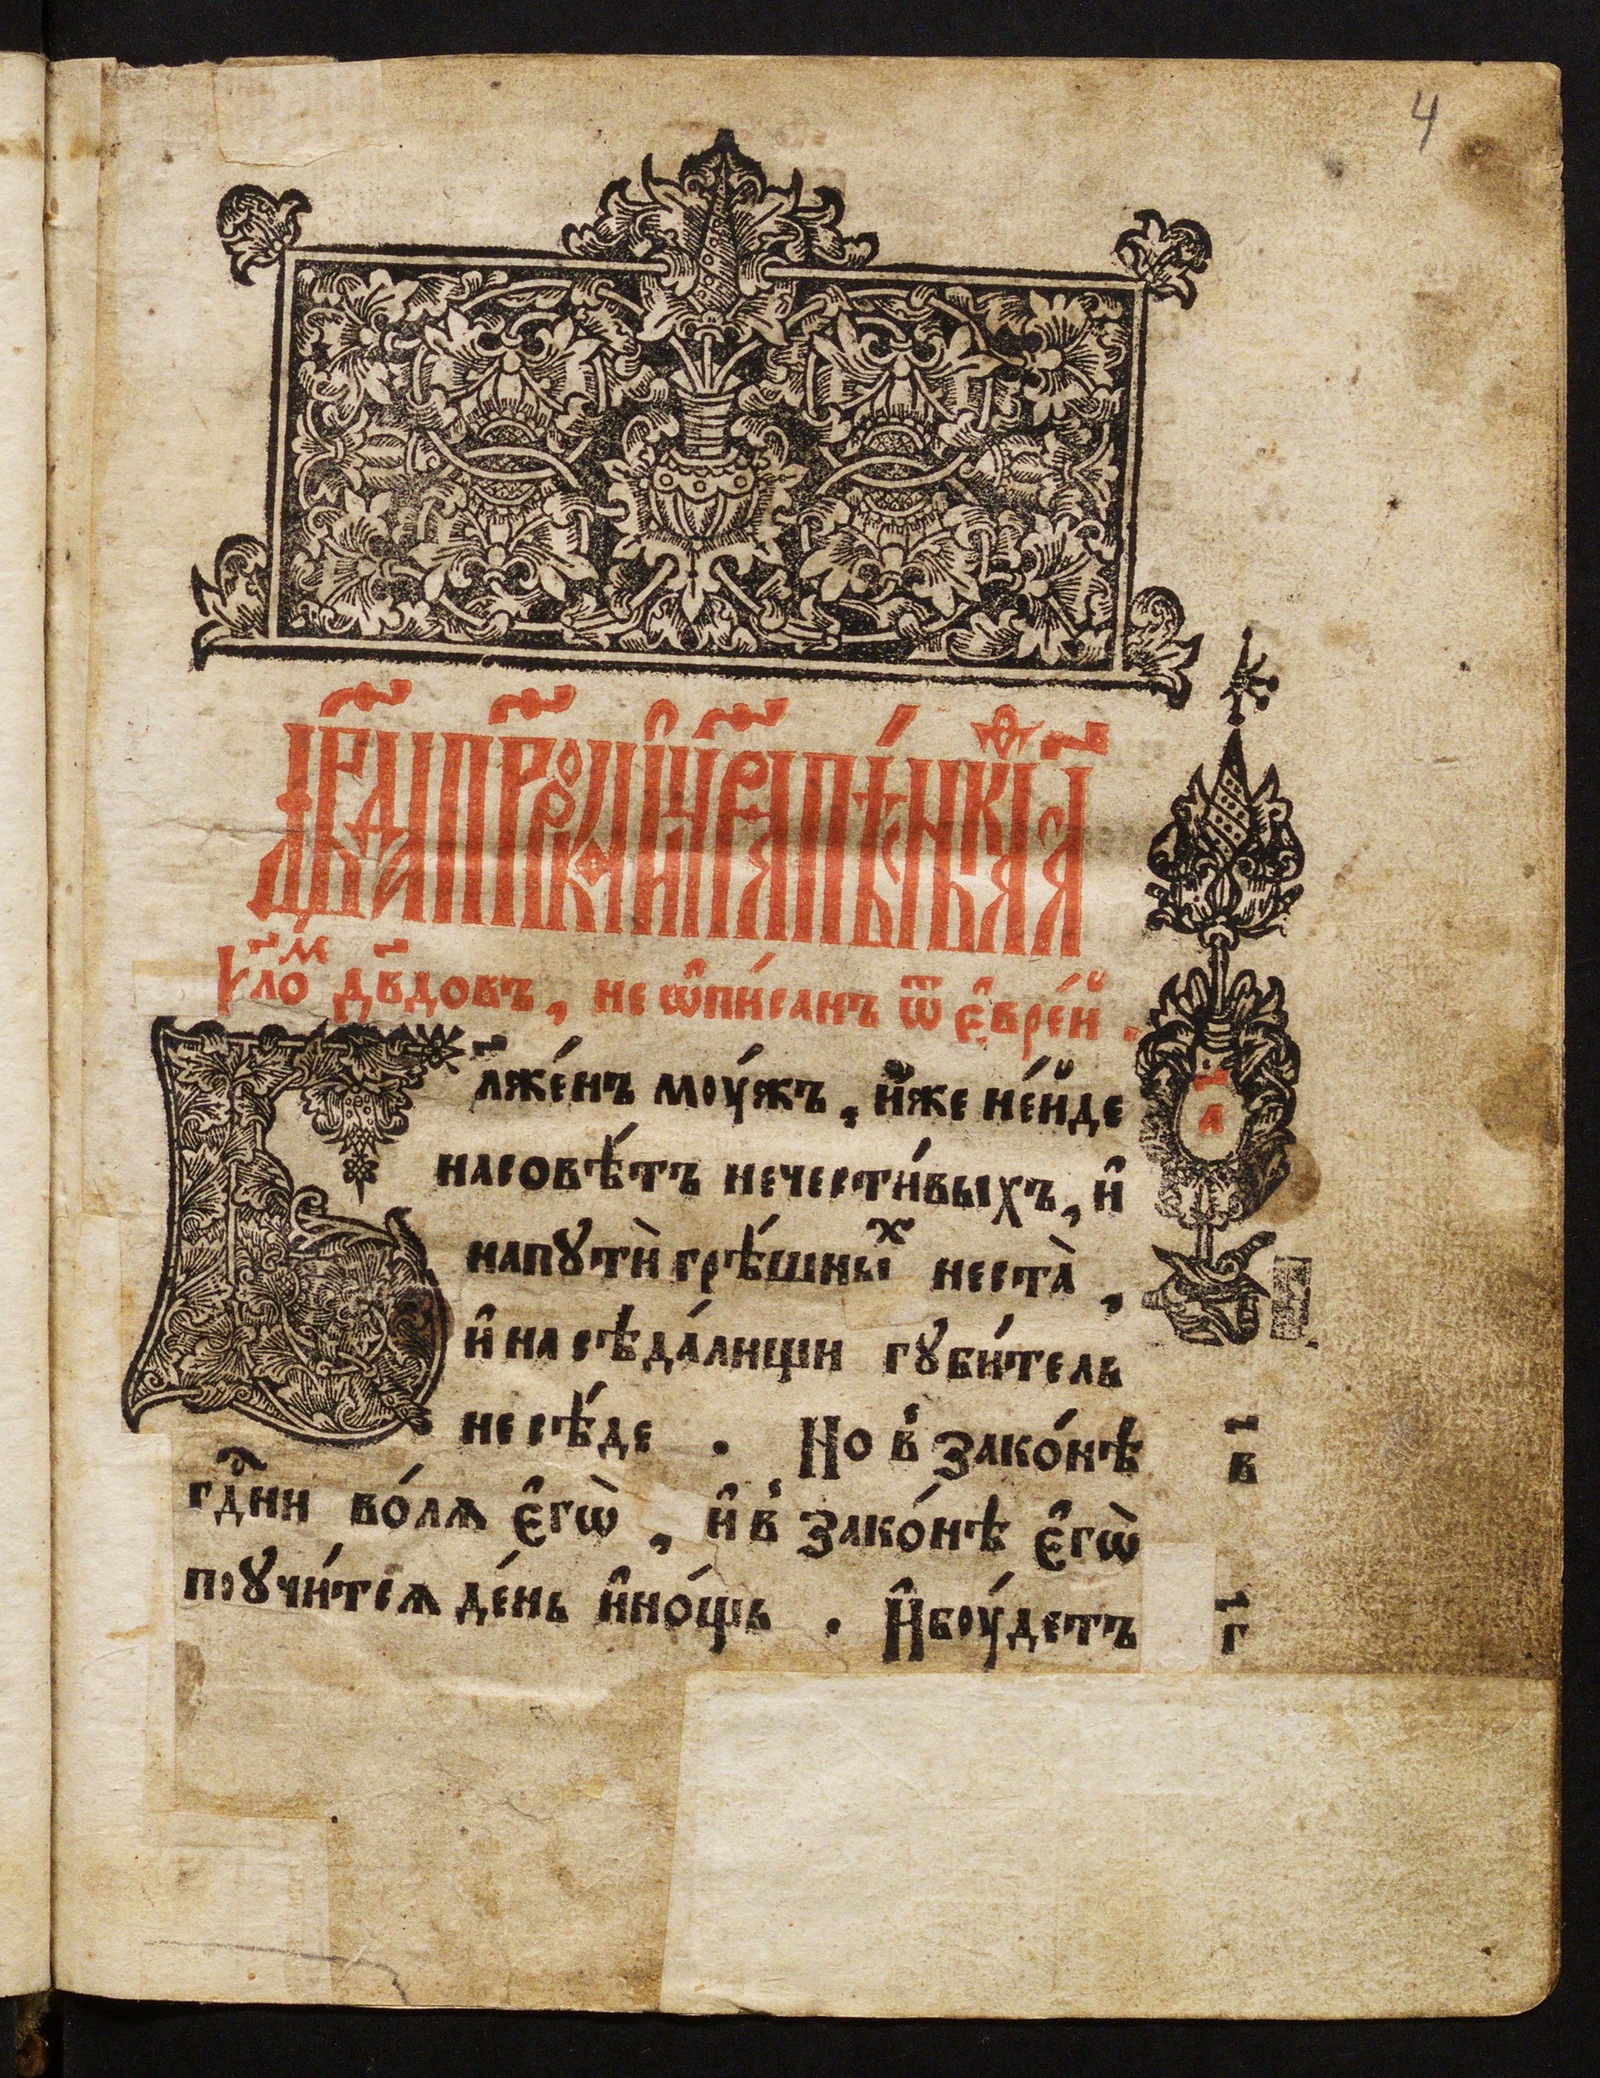 4
Д҃ва прⷪ҇рока и҆ цр҃ѧ пѣ́снь
ѱл҃оⷨ дв҃довъ, не ѡ҆пи́санъ ѿ є҆врє́й .
Бл҃же́нъ моу́жъ, и҆́же не́йде
а҃
насовѣ́тъ нечести́выхъ, и҆
напꙋтѝ грѣ́шныⷯ нестà,
и҆ на сѣда́лищи гꙋби́тель
несѣ́де . Но в̾ зако́нѣ
в҃
гдⷭ҇ни во́лѧ є҆гѡ̀, и҆ в̾ зако́нѣ є҆гѡ̀
поꙋчи́тсѧ де́нь и҆но́щь . И҆боу́детъ
г҃